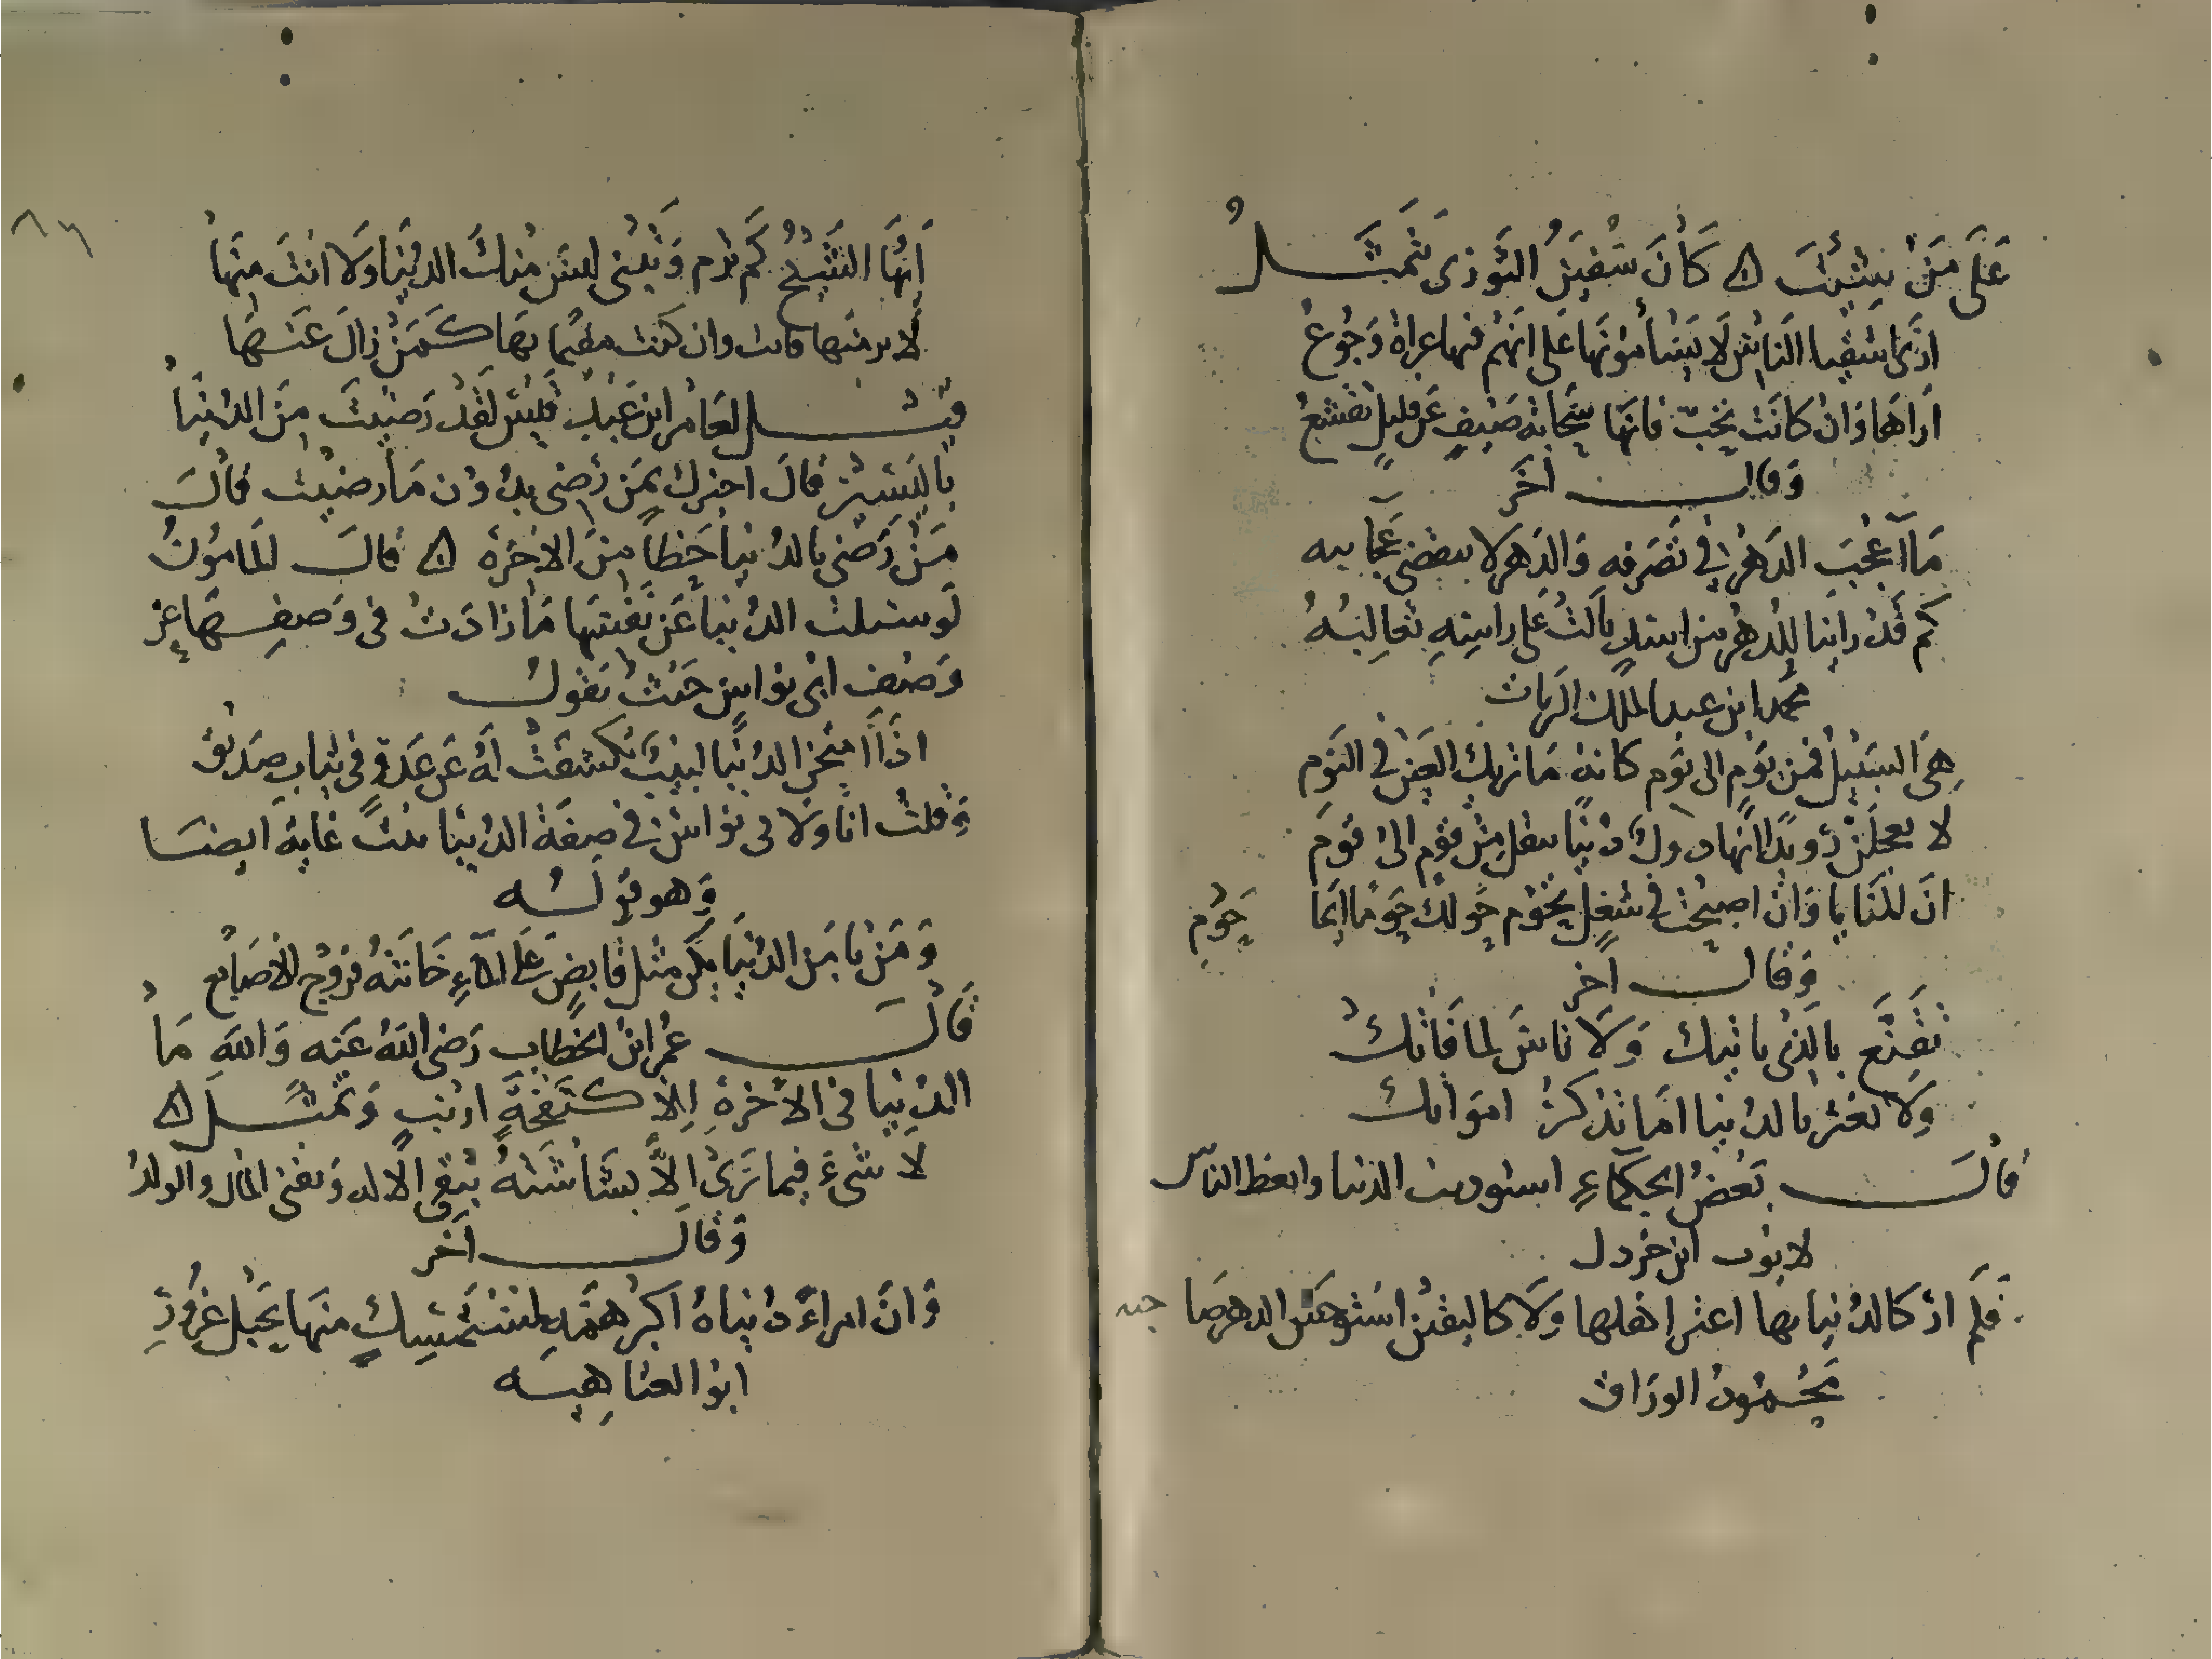 على من بنيت ۞ كان سفين الثوري يتمثل
ارى اشقيا الناس لا يسأمونها على انهم فيها عراة وجوع
اراها وان كانت تحب فانها سحابة صيف عن قليل تقشع
وقال اخر
ما اعجب الدهر في تصرفه والدهر لا ينقضي عجايبه
كم قد راينا للدهر من اسد بالت على راسه ثعالبه
محمد ابن عبد الملك الزيات
هي السبيل فمن يوم الى يوم كانه ما تريك العين في النوم
لا تعجلن رويدا انها دول دنيا تنقل من قوم الى قوم
ان المنايا وان اصبحت في شغل تحوم حولك حوما ايما حوم
وقال اخر
تقنع بالذي ياتيك ولا تاس لما فاتك
ولا تغتر بالدنيا اما تذكر امواتك
قال بعض الحكماء الدنيا واتعظ الناس
ابن خردل
فلم ار كالدنيا بها اعتر اهلها ولا كاليقين استوحش الدهر صاحبه
محمود الوراق
ايها الشيخ كم ترم وتبني ليس منك الدنيا ولا انت منها
لا بد منها وان كنت مقيما بها كمن زال عنها
قيل لعامر ابن عبد قيس لقد رضيت من الدنيا
باليسير قال اخبرك بمن رضي بدون ما رضيت قال
من رضي بالدنيا حظا من الاخرة ۞ قال المامون
لو سئلت الدنيا عن نفسها ما زادت في وصفها عن
وصف ابي نواس حيث يقول
اذا امتحن الدنيا لبيب تكشفت له عن عدو في ثياب صديق
وقلت انا ولابي نواس في صفة الدنيا بيت غاية ايضا
وهو قوله
ومن يامن الدنيا يكن مثل قابض على الماء خانته فروج الاصابع
قال عمر ابن الخطاب رضي الله عنه والله ما
الدنيا في الاخرة الا كنفخة ارنب وتمثل ۞
لا شيء فيما ترى الا بشاشته يبقى الاله ويفنى المال والولد
وقال اخر
وان امراء دنياه اكبر همه لمستمسك منها بحبل غرور
ابو العتاهيه